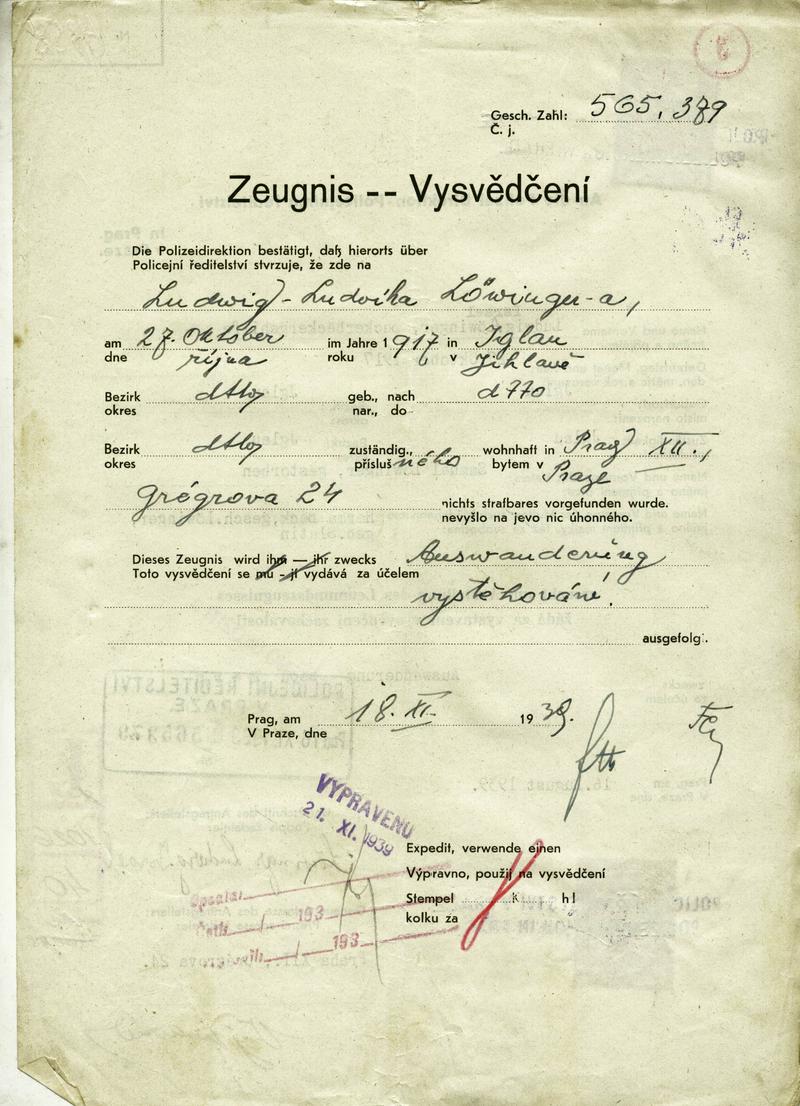 Gesch. Zahl: 565.379
Č. j.
Zeugnis -- Vysvědčení
Die Polizeidirektion bestätigt, daß hierorts über
Policejní ředitelství stvrzuje, že zde na
Ludwig - Ludvíka Löwinger-a,
am 27. Oktober im Jahre 1917 in Iglau
dne října roku v Jihlavě
Bezirk dtto geb., nach dtto
okres nar., do
Bezirk dtto zuständig., wohnhaft in Prag XII.,
okres přísluš ného bytem v Praze
Grégrova 24 nichts strafbares vorgefunden wurde.
nevyšlo na jevo nic úhonného.
Dieses Zeugnis wird ihm — ihr zwecks Auswanderung
Toto vysvědčení se mu - jí vydává za účelem
vystěhování,
ausgefolg.
Prag, am 18. XI. 1939.
V Praze, dne
VYPRAVENO
21. XI. 1939
Expedit, verwende einen
Výpravno, použij na vysvědčení
Stempel K hl
kolku za
Opsalai
193
193